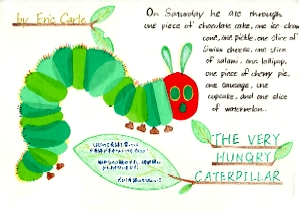 by Eric Carle
On Saturday he ate through
one piece of chocolate cake, one ice-cream
cone, one pickle, one slice of
Swiss cheese, one slice
of salami, one lollipop,
one piece of cherry pie,
one sausage, one
cupcake, and one slice
of watermelon.
THE VERY
HUNGRY
CATERPILLAR